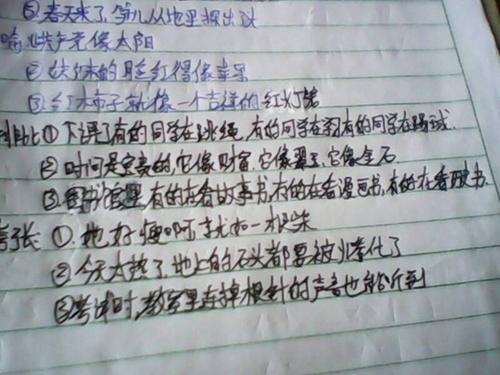 ③春天来了,笋儿从地里探出头
喻①共产党像太阳
②妹妹的脸红得像苹果
③红柿子就像一个吉祥的红灯笼
排比①下课了有的同学在跳绳,有的同学在 有的同学在踢球.
②时间是宝贵的,它像财富.它像 它像金石
③图书馆里有的在看故事书,有的在看漫画书,有的在看 书.
夸张①.她好瘦啊 犹如一根柴
②今天太热了,地上的石头都要被 化了
③考试时,教室里连掉根针的声音也能听到